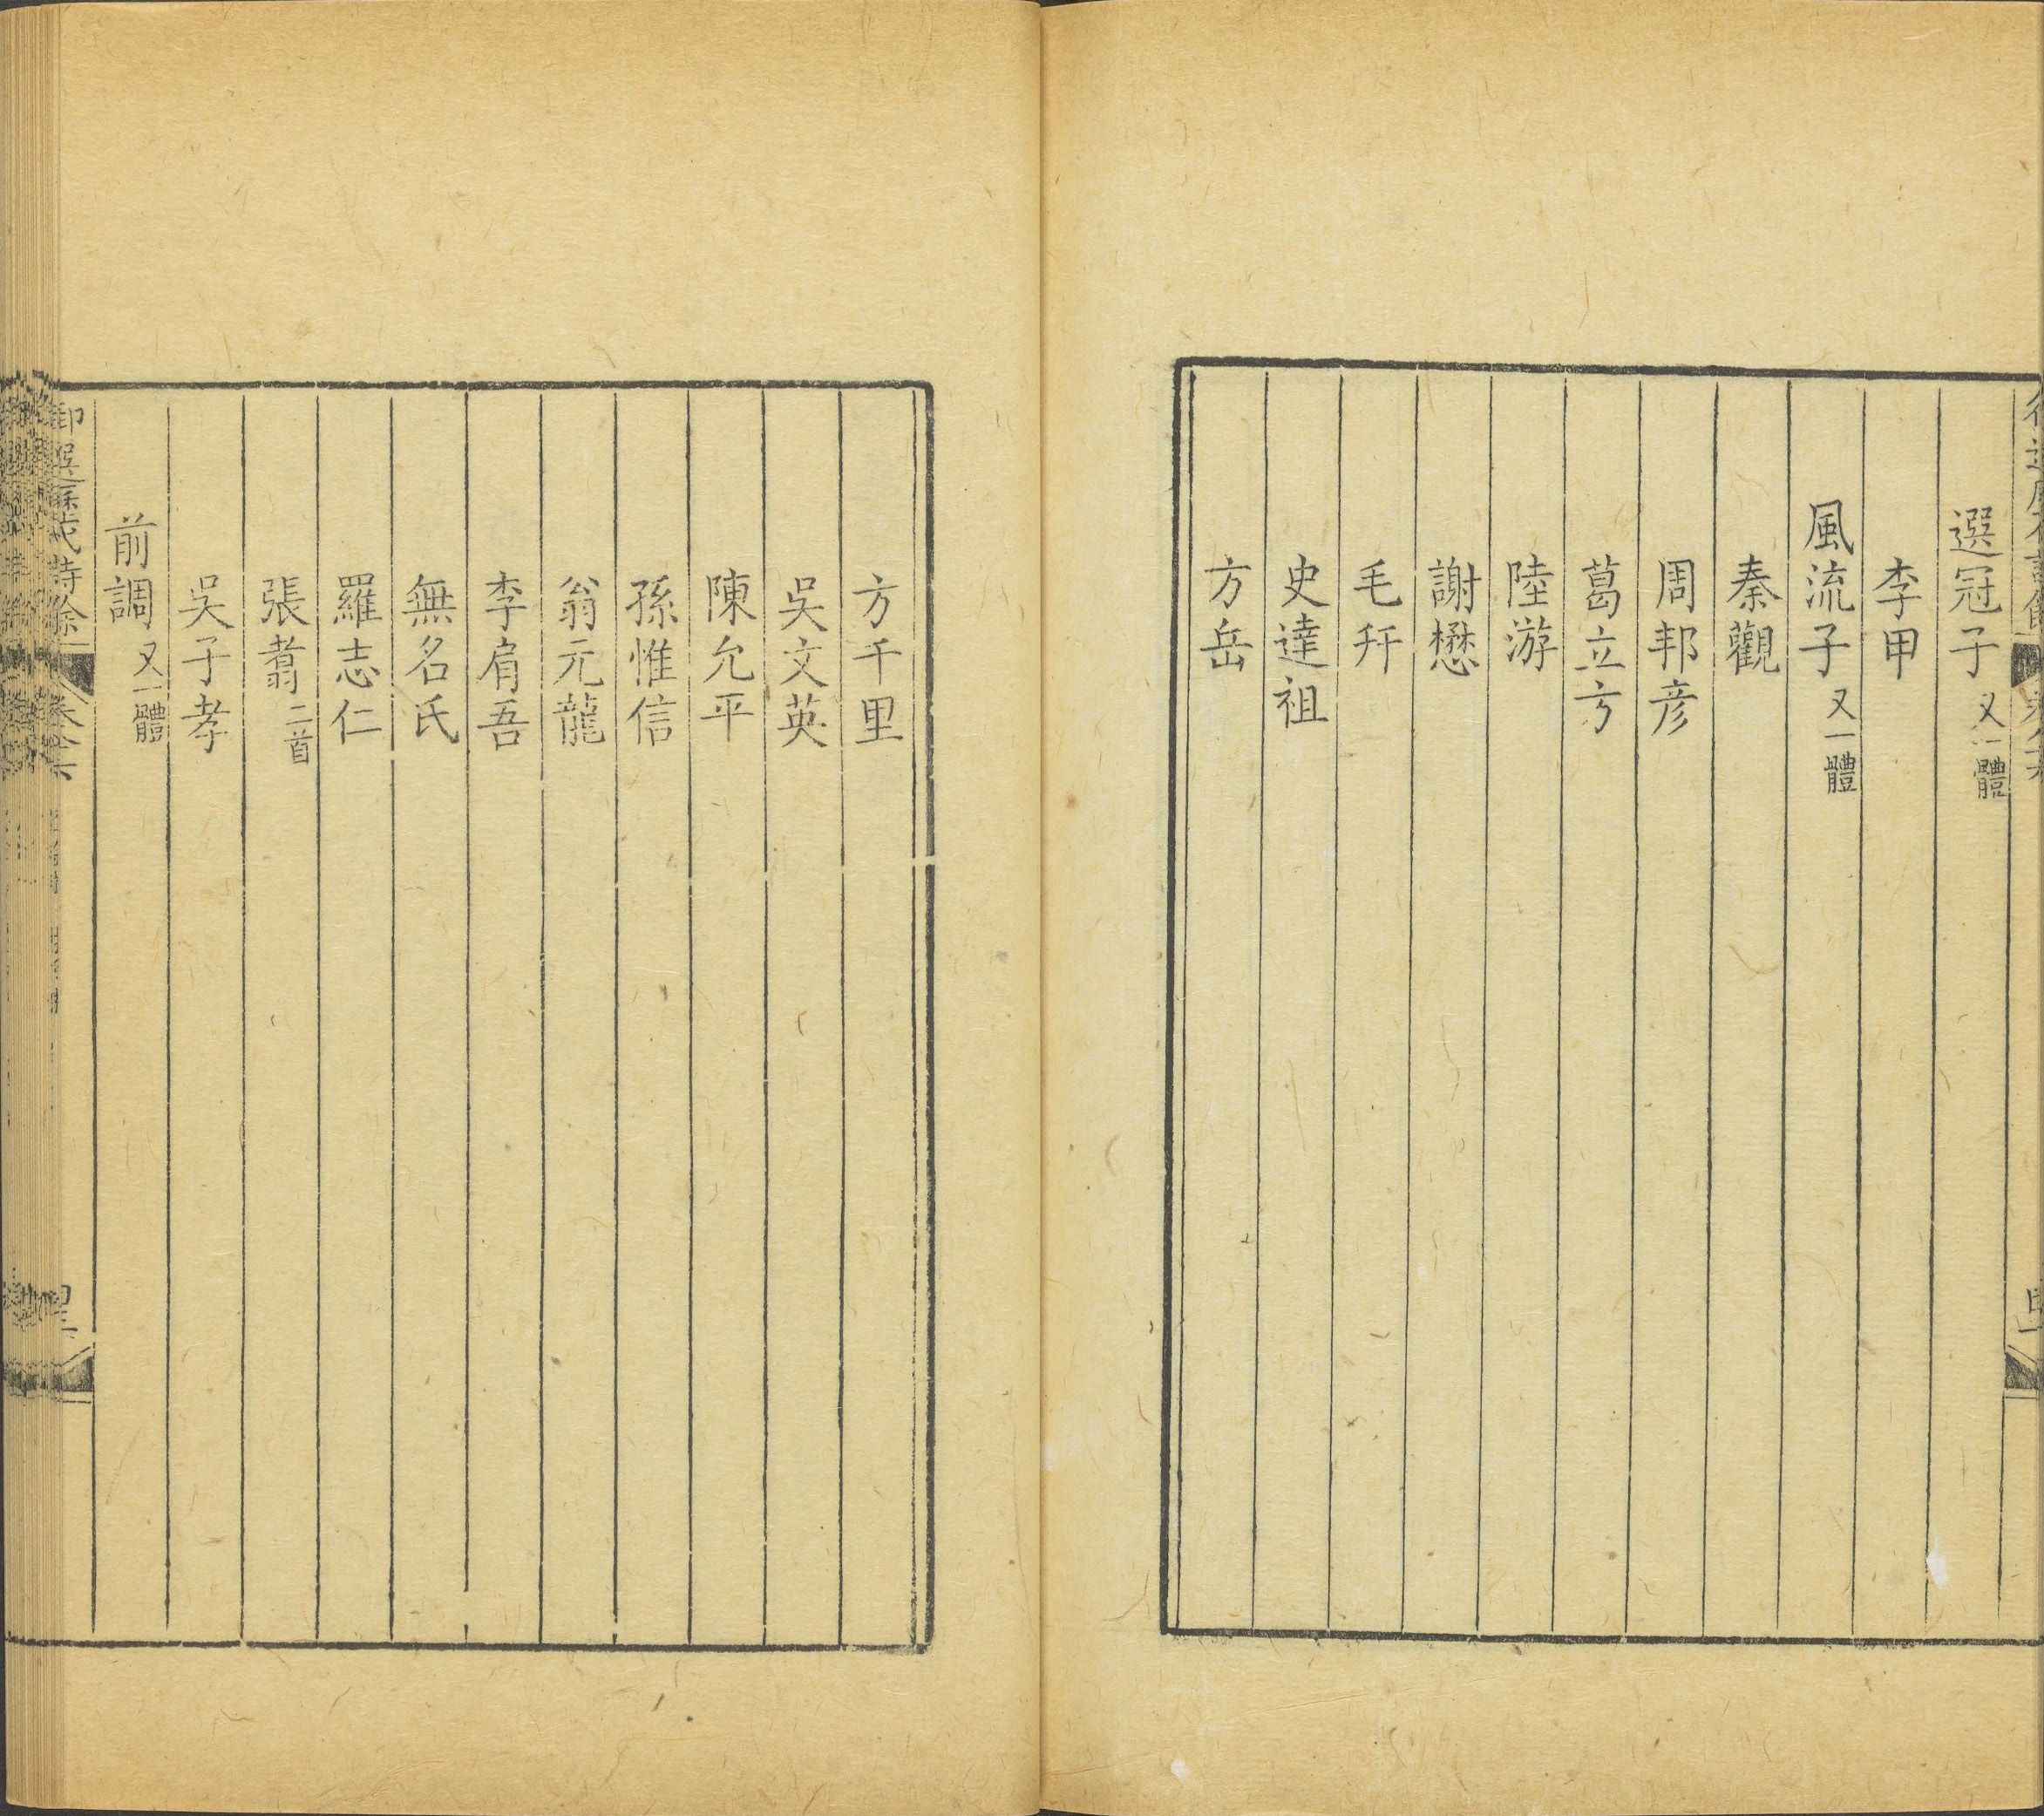 選冠子又一體
李甲
風流子又一體
秦觀
周邦彦
葛立方
陸游
謝懋
毛幵
史達祖
方岳
方千里
吳文英
陳允平
孫惟信
翁元龍
李肩吾
無名氏
羅志仁
張翥二首
吳子孝
前調又一體
御選歷代詩餘